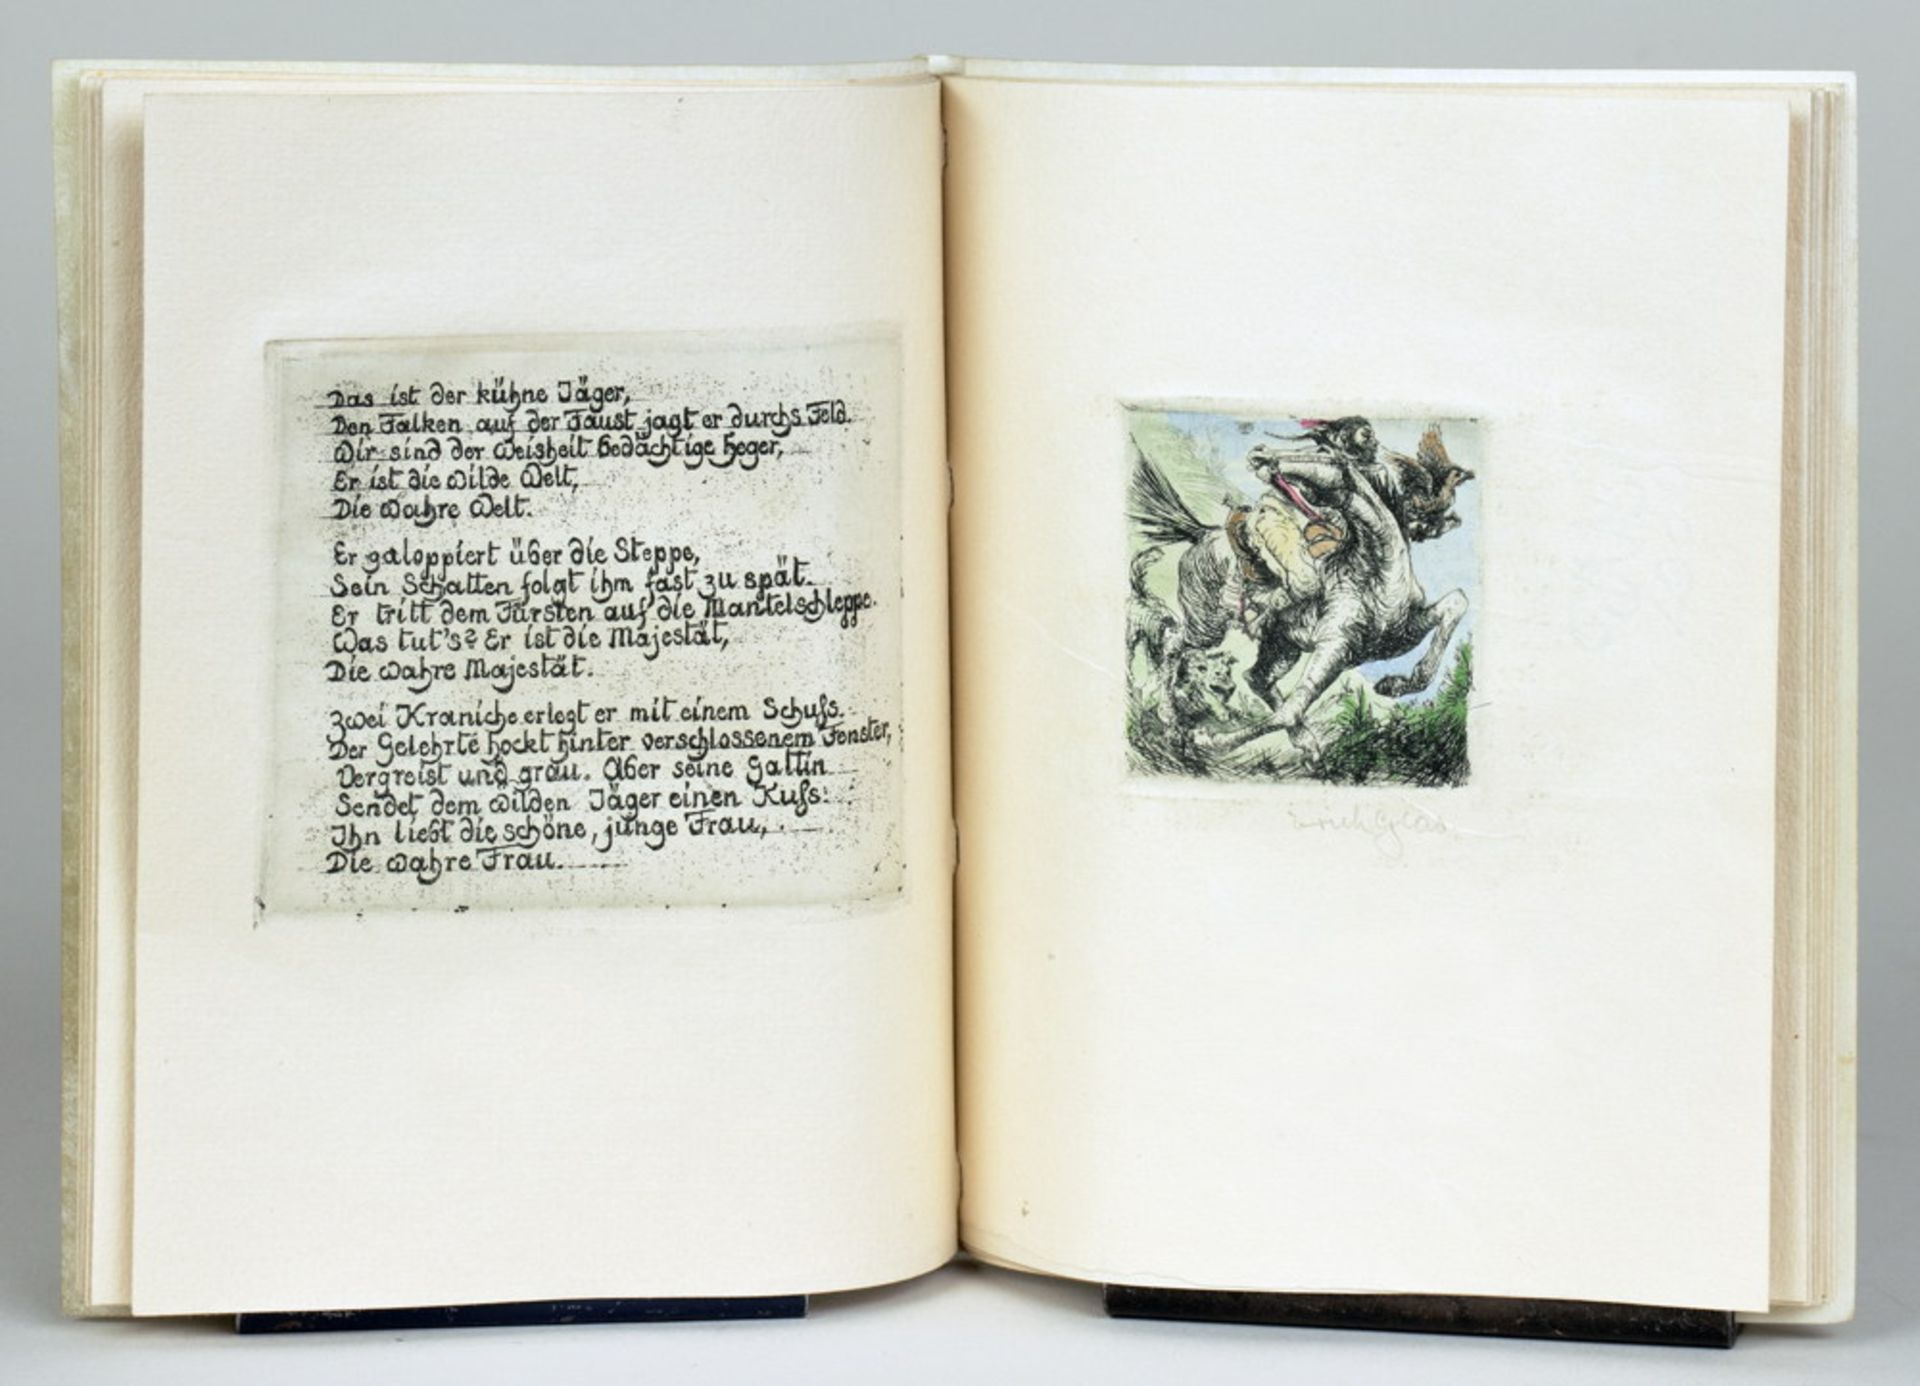 Das ist der kühne Jäger,
Den Falken auf der Faust jagt er durchs Feld.
Wir sind der Weisheit bedächtige Heger,
Er ist die wilde Welt,
Die wahre Welt.
Er galoppiert über die Steppe,
Sein Schatten folgt ihm fast zu spät.
Er tritt dem Fürsten auf die Mantelschleppe.
Was tut's? Er ist die Majestät,
Die wahre Majestät.
Zwei Kraniche erlegt er mit einem Schuſs.
Der Gelehrte hockt hinter verschlossenem Fenster,
Vergreist und grau. Aber seine Gattin
Sendet dem wilden Jäger einen Kuſs:
Ihn liebt die schöne, junge Frau,
Die wahre Frau.
Erich Glas